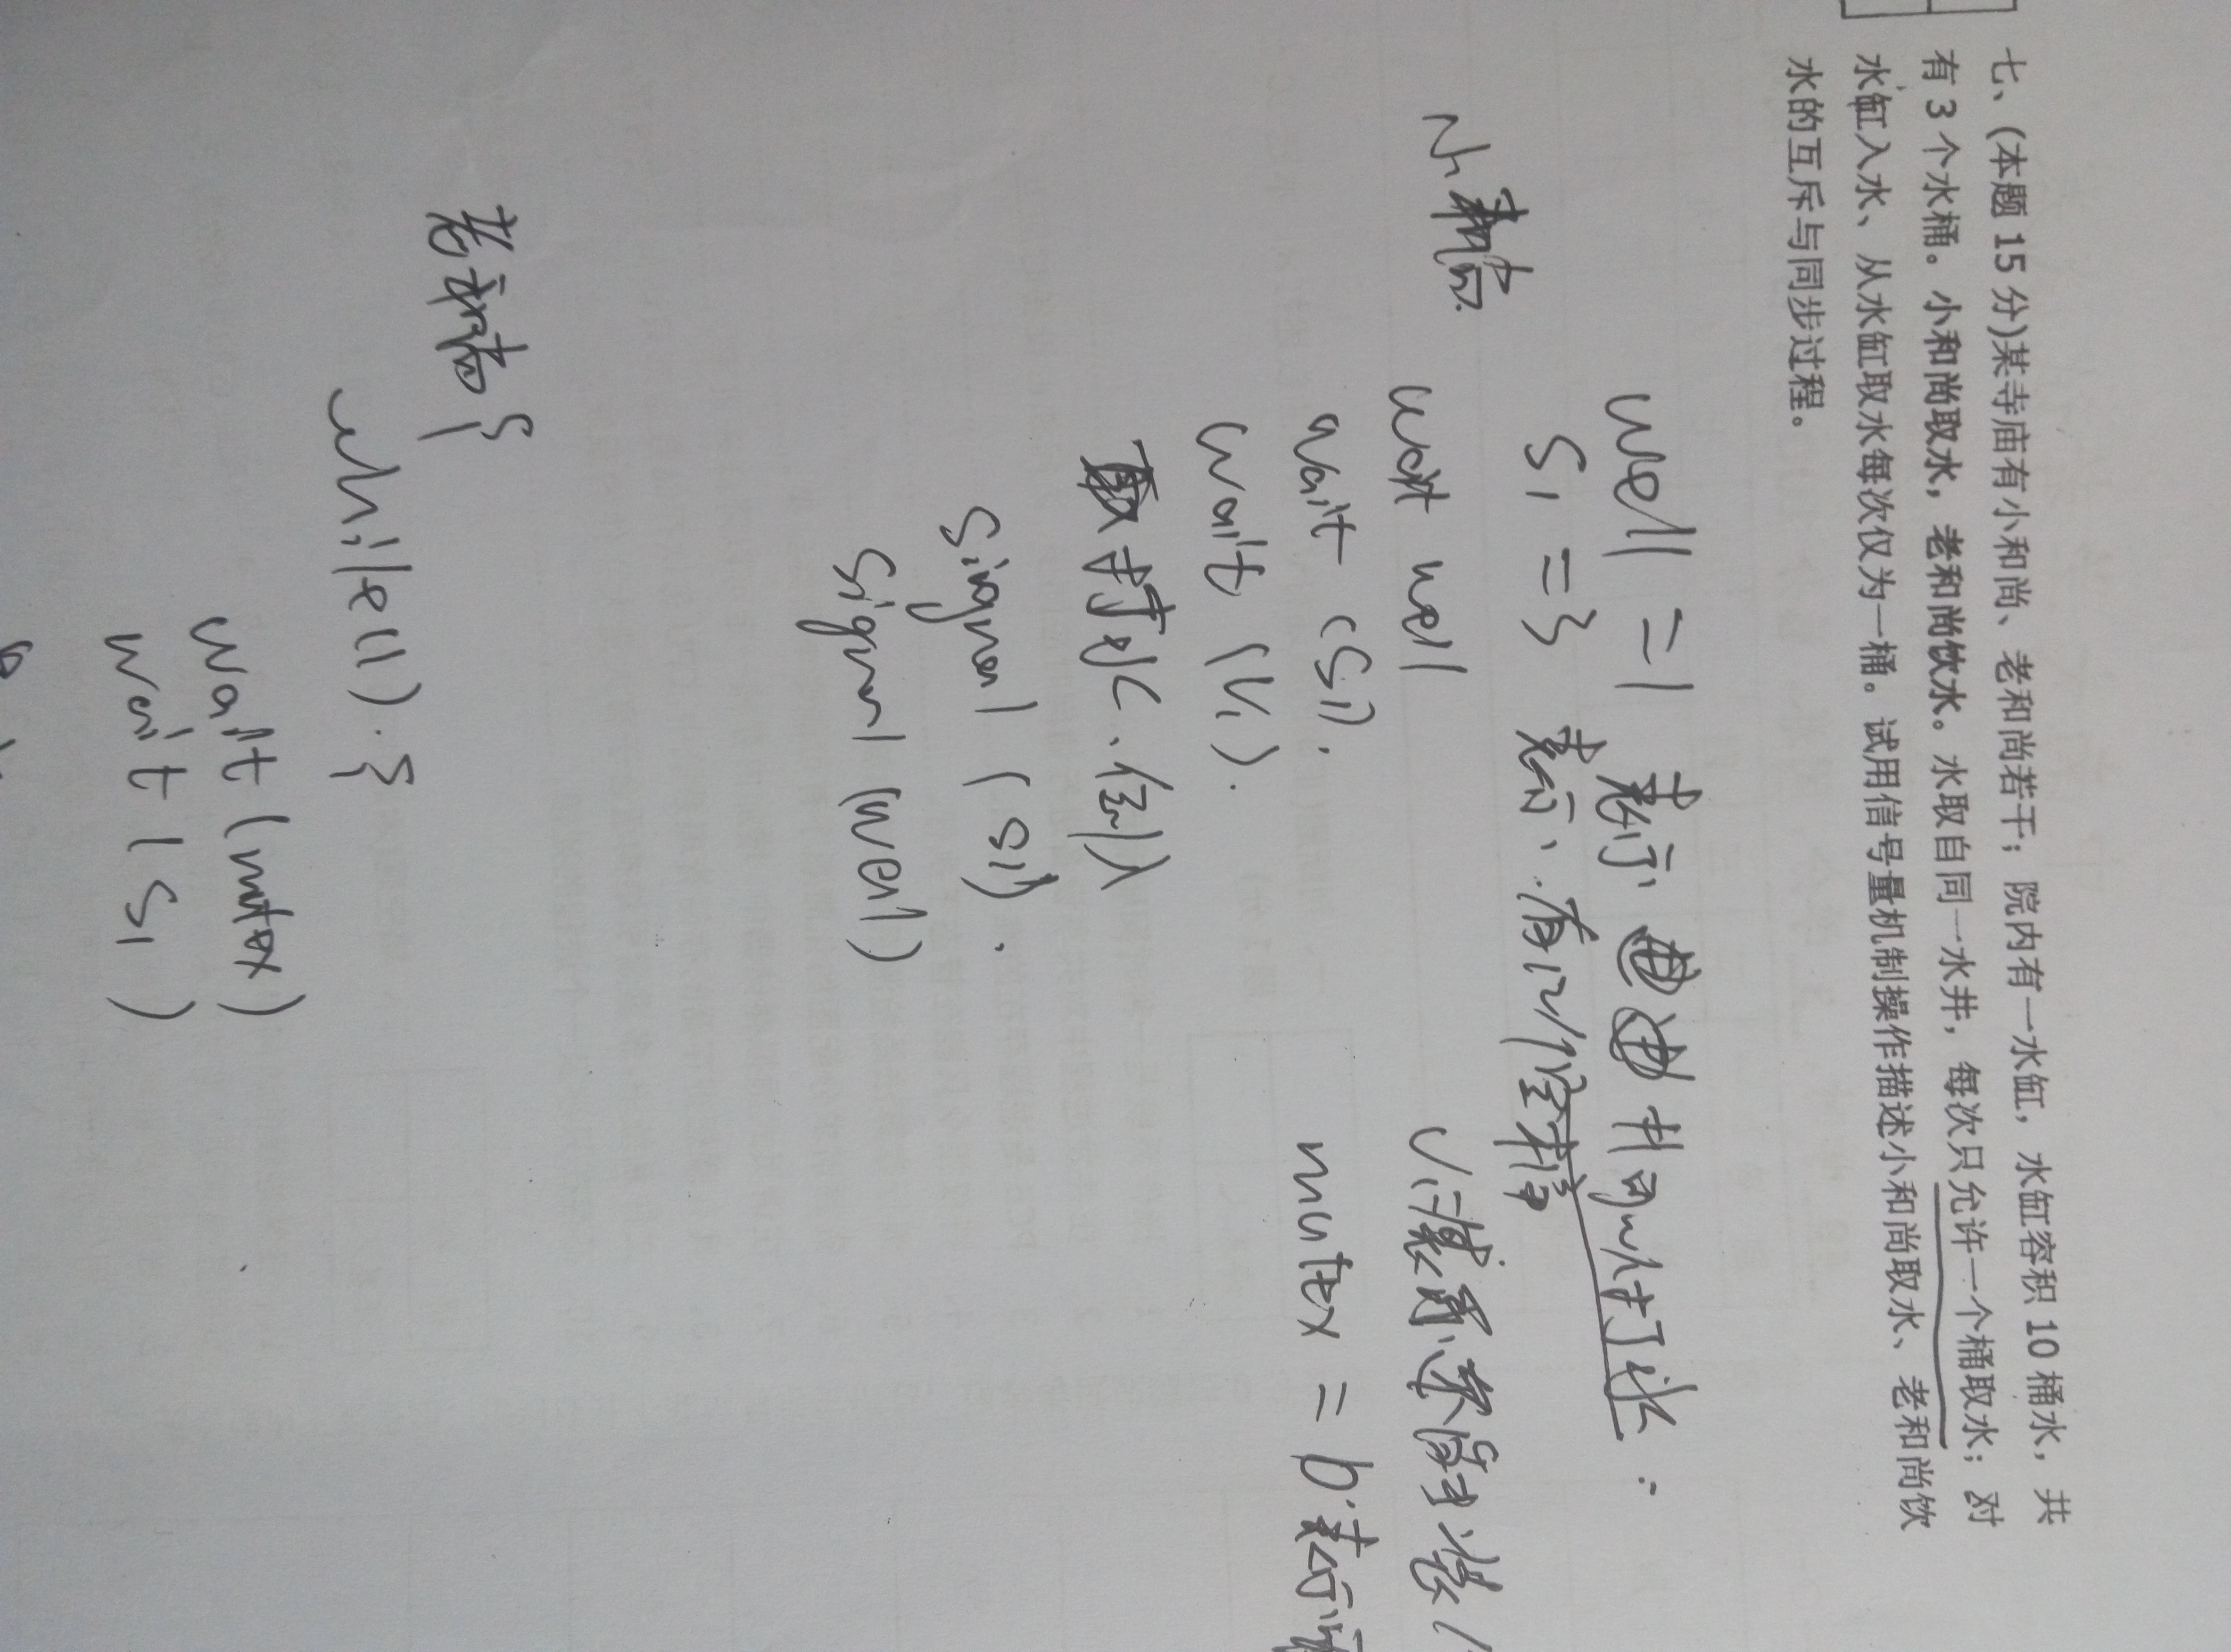 七、(本题 15 分)某寺庙有小和尚、老和尚若干；院内有一水缸，水缸容积 10 桶水，共
有 3 个水桶。小和尚取水，老和尚饮水。水取自同一水井，每次只允许一个桶取水；对
水缸入水、从水缸取水每次仅为一桶。试用信号量机制操作描述小和尚取水、老和尚饮
水的互斥与同步过程。
well =1 表示 井可以打水
S1 =3 表示 有几个空桶
小和尚
V1 表示还能装
wait well
mutex = 表示
wait (S1).
wait (V1).
取打水、倒入
signal (S1).
signal (well)
老和尚{
while(1).{
wait (mutex)
wait (S1)